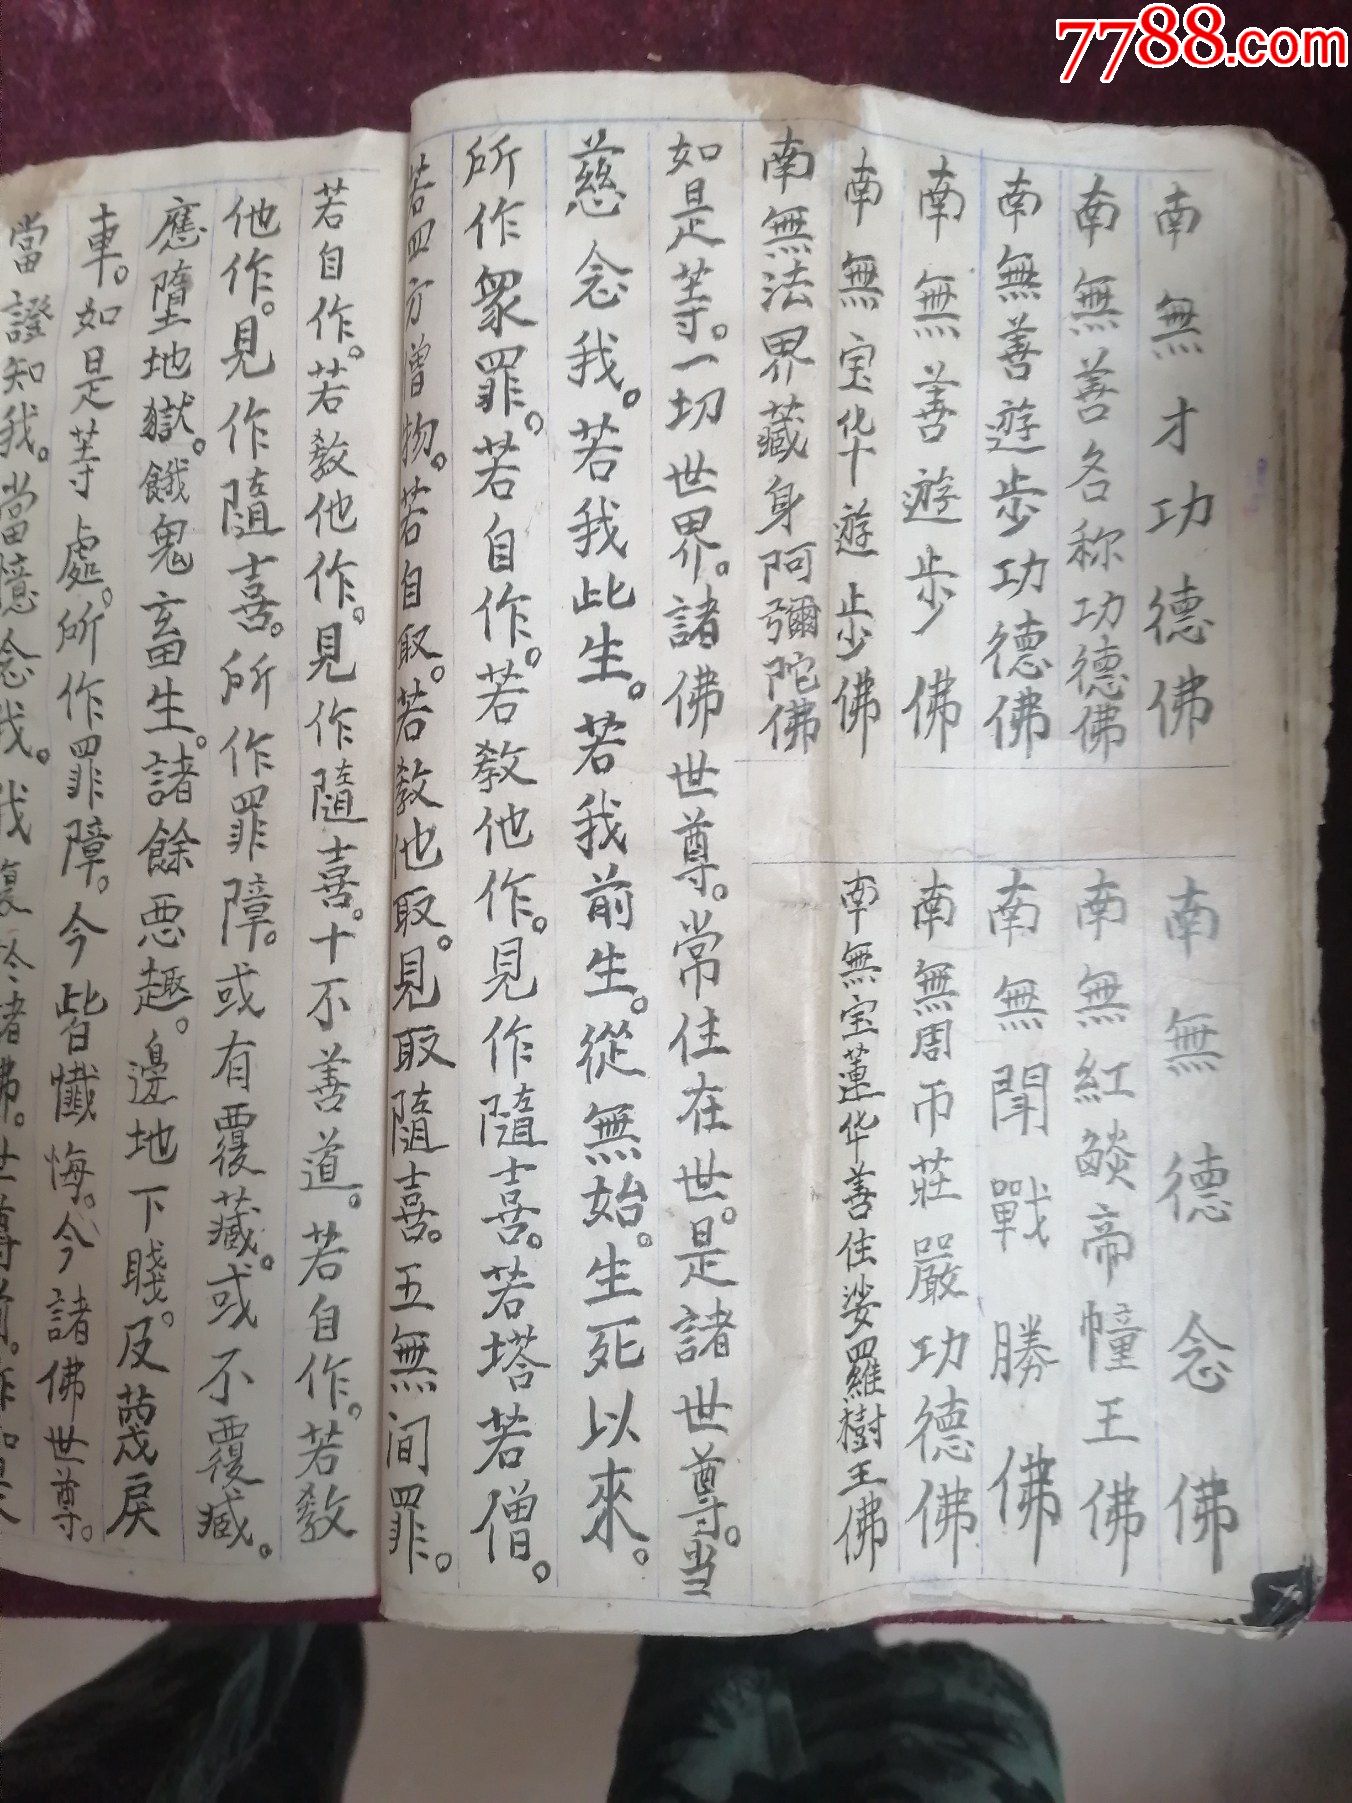 7788.com
南無才功德佛
南無德念佛
南無善各称功德佛
南無紅燄帝幢王佛
南無善遊步功德佛
南無閗戰勝佛
南無善遊步佛
南無周帀莊嚴功德佛
南無宝华遊步佛
南無宝蓮华善住娑羅樹王佛
南無法界藏身阿彌陀佛
如是等。一切世界。諸佛世尊。常住在世。是諸世尊。当
慈念我。若我此生。若我前生。從無始。生死以來。
所作衆罪。若自作。若教他作。見作隨喜。若塔若僧。
若四方僧物。若自取。若教他取。見取隨喜。五無间罪。
若自作。若教他作。見作隨喜。十不善道。若自作。若教
他作。見作隨喜。所作罪障。或有覆藏。或不覆藏。
應墮地獄。餓鬼畜生。諸餘惡趣。邊地下賤。及蔑戾
車。如是等處。所作罪障。今皆懺悔。今諸佛世尊。
當證知我。當憶念我。我復今諸佛。世尊前。作如是